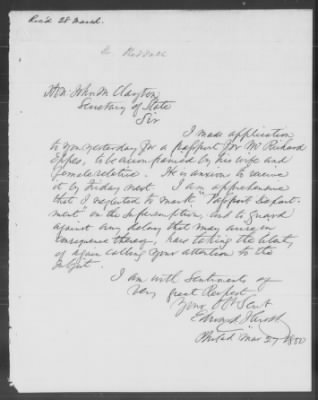 Rec'd 28 March.
Hon: John M. Clayton,
Secretary of State
Sir
I made application
to you yesterday for a Passport for Mr Richard
Eppes, to be accompanied by his wife and
female relative. He is anxious to receive
it by Friday next. I am apprehensive
that I neglected to mark "Passport Depart-
ment" on the Superscription, and to guard
against any delay that may arise in
consequence thereof, I am taking the liberty
of again calling your attention to the
subject.
I am with Sentiments of
very great Respect
Your Obt Servt
Edward
Philad Mar 27 1850